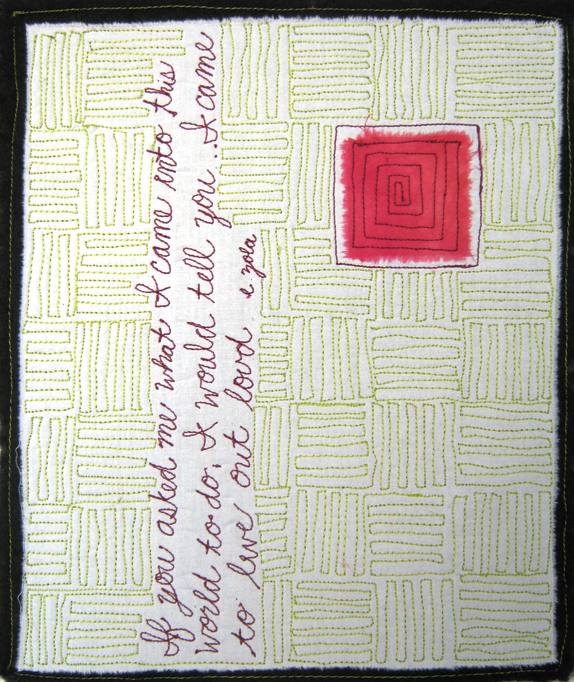 If you asked me what I came into this
world to do, I would tell you...I came
to live out loud. e zola